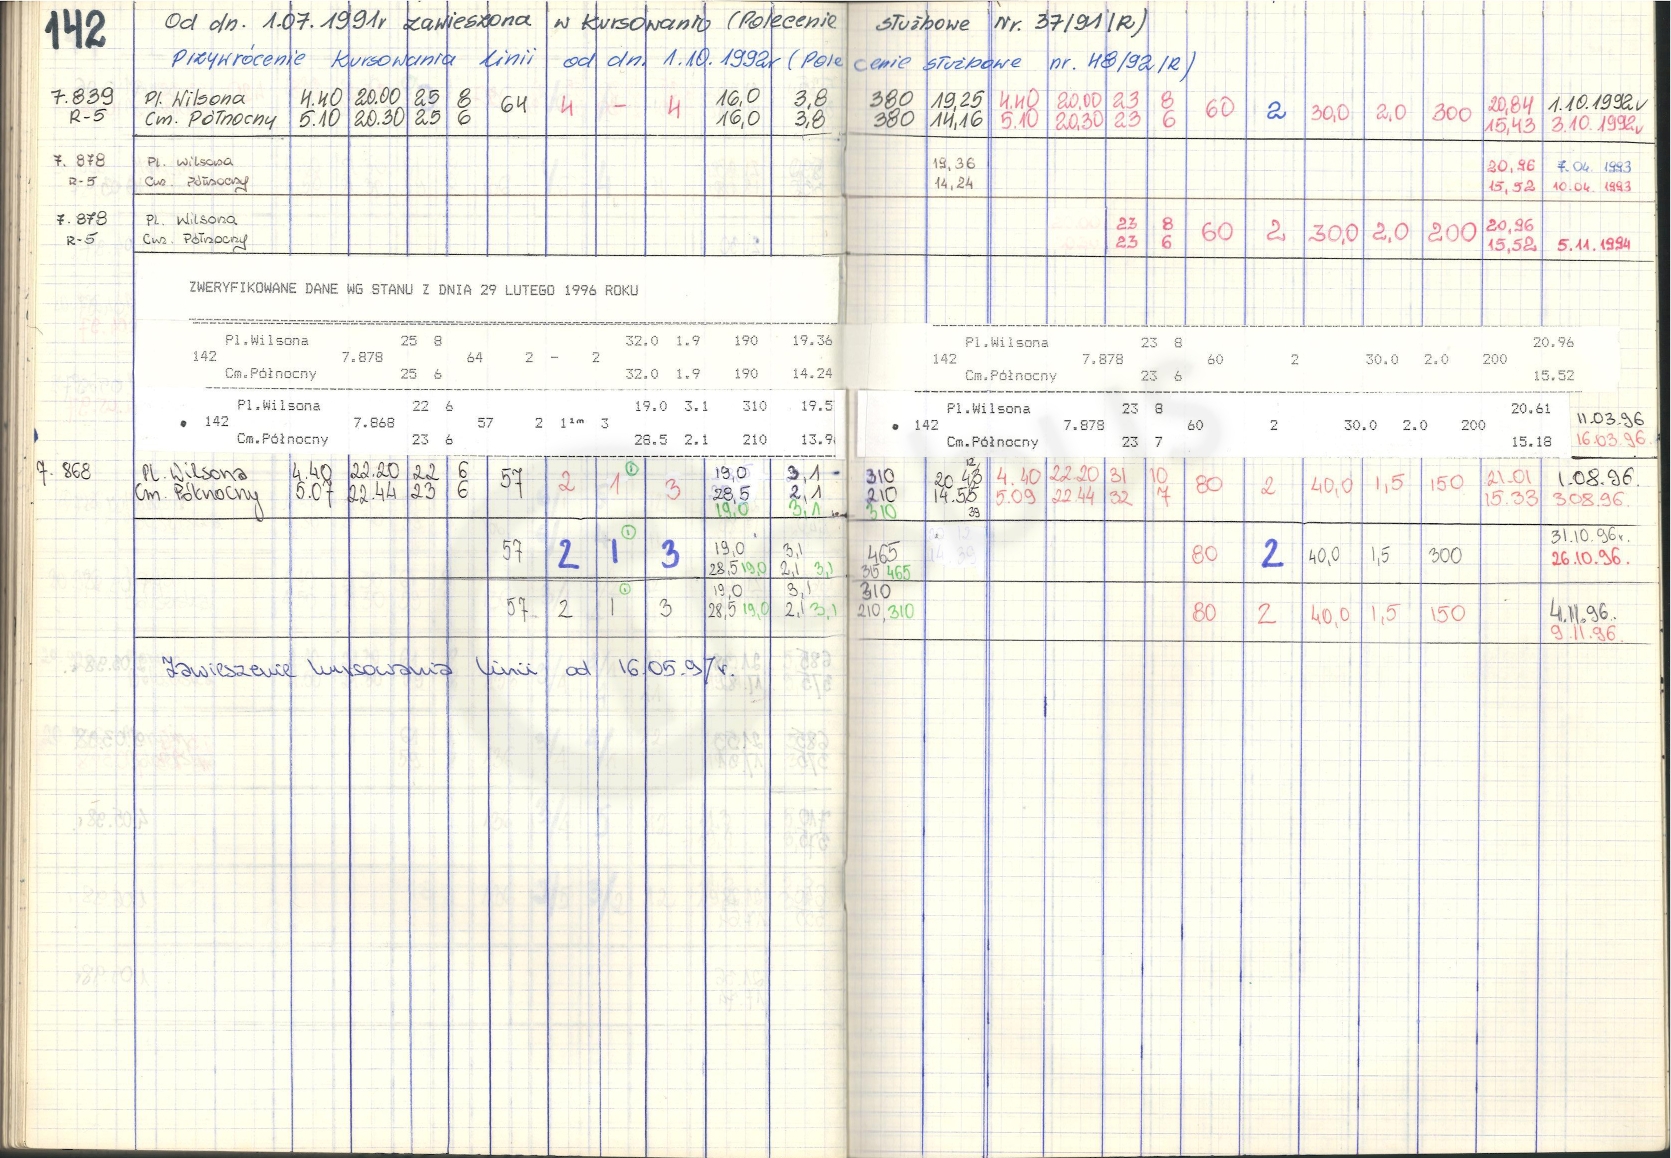 142 Od dn. 1.07.1991r zawieszona w kursowaniu (Polecenie służbowe Nr. 37/91/R)
Przywrócenie kursowania linii od dn. 1.10.1992r (Polecenie służbowe nr. 48/92/R)
7.839 Pl. Wilsona 4.40 20.00 25 8 64 4 - 4 16,0 3,8 380 19,25 4.40 20,00 23 8 60 2 30,0 2,0 300 20,84 1.10.1992r
R-5 Cm. Północny 5.10 20.30 25 6 16,0 3,8 380 14,16 5.10 20,30 23 6 15,43 3.10.1992r
7.878 Pl. Wilsona 19,36 20,96 7.04.1993
R-5 Cm. Północny 14,24 15,52 10.04.1993
7.878 Pl. Wilsona 23 8 60 2 30,0 2,0 200 20,96
R-5 Cm. Północny 23 6 15,52 5.11.1994
ZWERYFIKOWANE DANE WG STANU Z DNIA 29 LUTEGO 1996 ROKU
Pl.Wilsona 25 8 32.0 1.9 190 19.36 Pl.Wilsona 23 8 20.96
142 7.878 64 2 - 2 142 7.878 60 2 30.0 2.0 200
Cm.Północny 25 6 32.0 1.9 190 14.24 Cm.Północny 23 6 15.52
Pl.Wilsona 22 6 19.0 3.1 310 19.5 Pl.Wilsona 23 8 20.61 11.03.96
142 7.868 57 2 1¹ᵐ 3 142 7.878 60 2 30.0 2.0 200
Cm.Północny 23 6 28.5 2.1 210 13.9 Cm.Północny 23 7 15.18 16.03.96
7.868 Pl. Wilsona 4.40 22.20 22 6 57 2 1 ① 3 19,0 3,1 310 4.40 22.20 31 10 80 2 40,0 1,5 150 21.01 1.08.96.
Cm. Północny 5.07 22.44 23 6 28,5 2,1 210 14.55 5.09 22.44 32 7 15.33 3.08.96.
19,0 3,1 310 39
57 2 1 ① 3 19,0 3,1 465 80 2 40,0 1,5 300 31.10.96r.
28,5 19,0 2,1 3,1 315 465 26.10.96.
57 2 1 ① 3 19,0 3,1 310 80 2 40,0 1,5 150 4.11.96.
28,5 19,0 2,1 3,1 210, 310 9.11.96.
Zawieszenie kursowania linii od 16.05.97r.